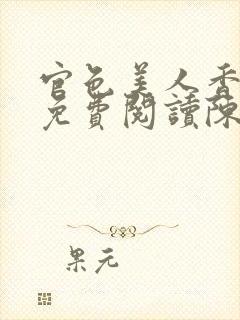 官色美人香
免費閱讀陳
果元